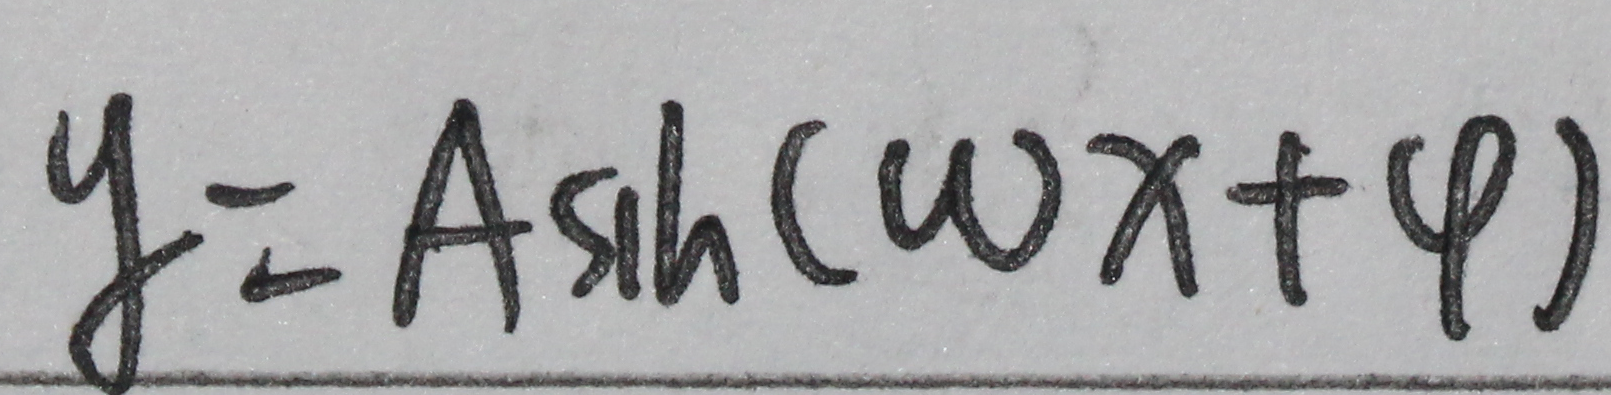 y = A sin(ωx+φ)